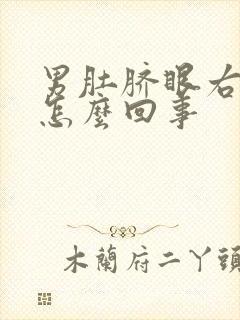 男肚脐眼右
怎麼回事
木蘭府二丫頭